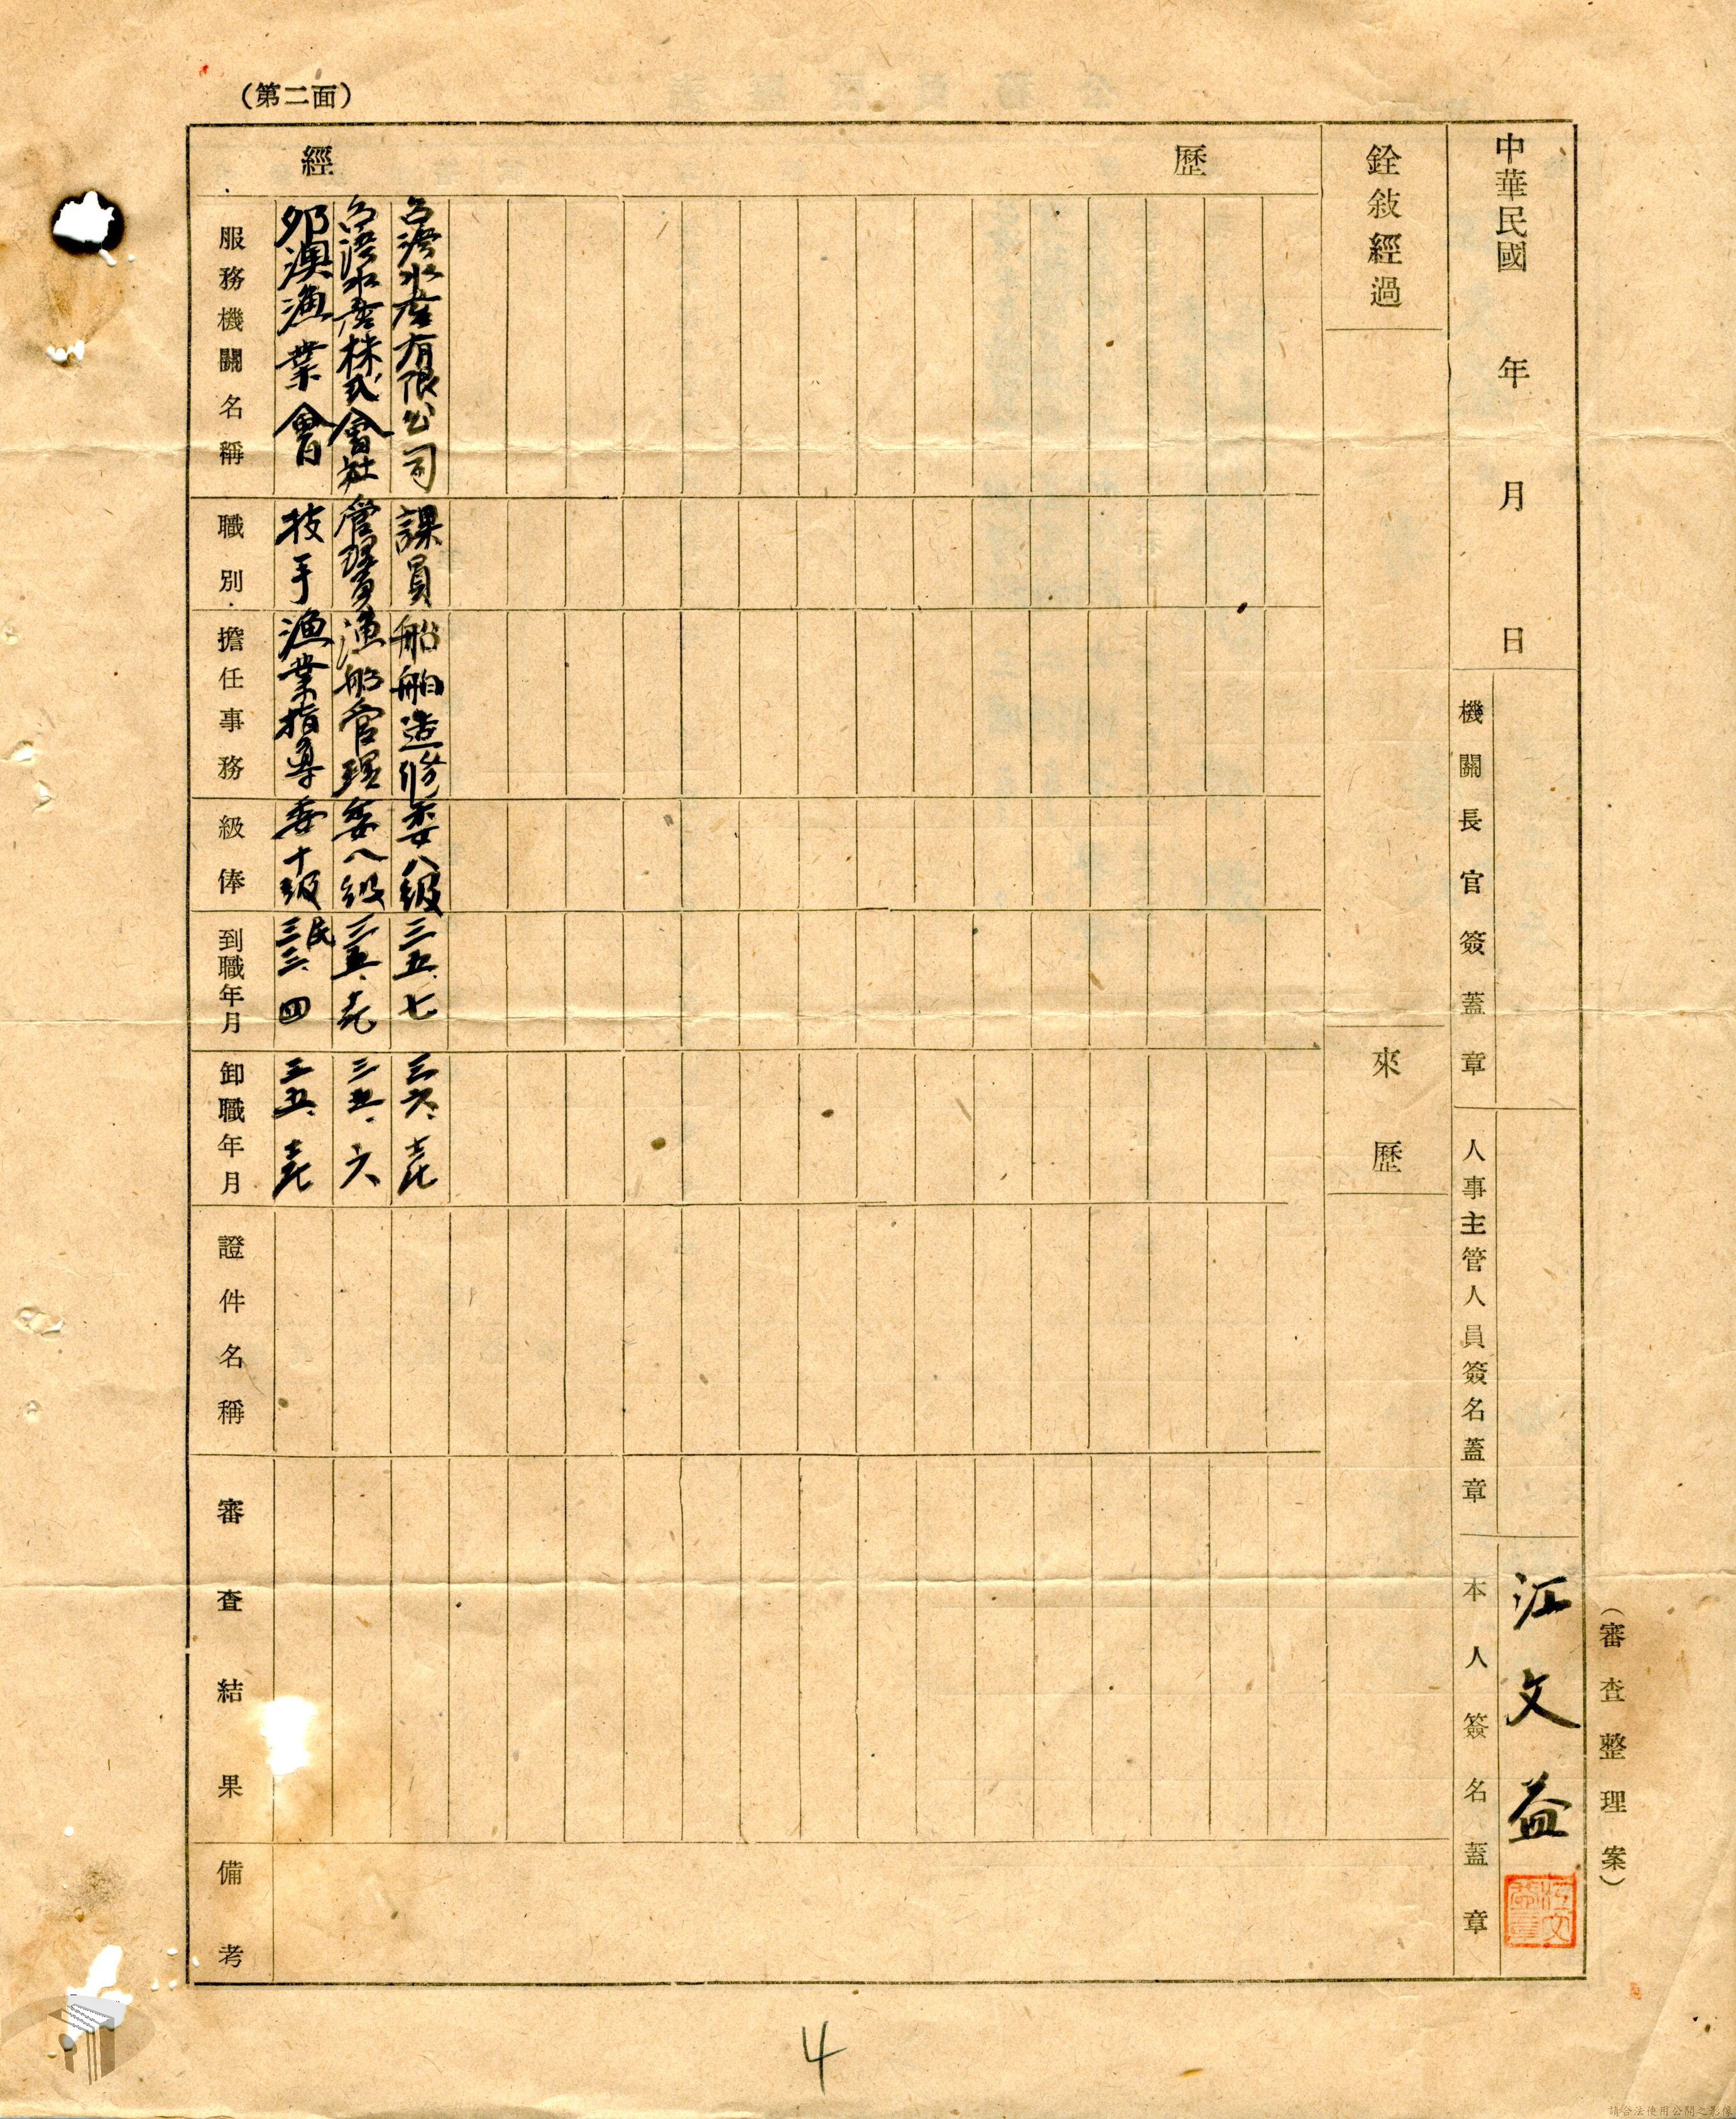 （第二面）
經歷
服務機關名稱
職別
擔任事務
級俸
到職年月
卸職年月
證件名稱
審查結果
備考
漁業會
技手
漁業指導
委十級
民三三、四
三五、
水產株式會社
管理員
漁船管理
委八級
三五、
三五、六
水產有限公司
課員
船舶造修
委八級
三五、七
三六、
銓敍經過
來歷
中華民國 年 月 日
機關長官簽蓋章
人事主管人員簽名蓋章
本人簽名蓋章
江文益
（審查整理案）
4
請合法使用公開之影像